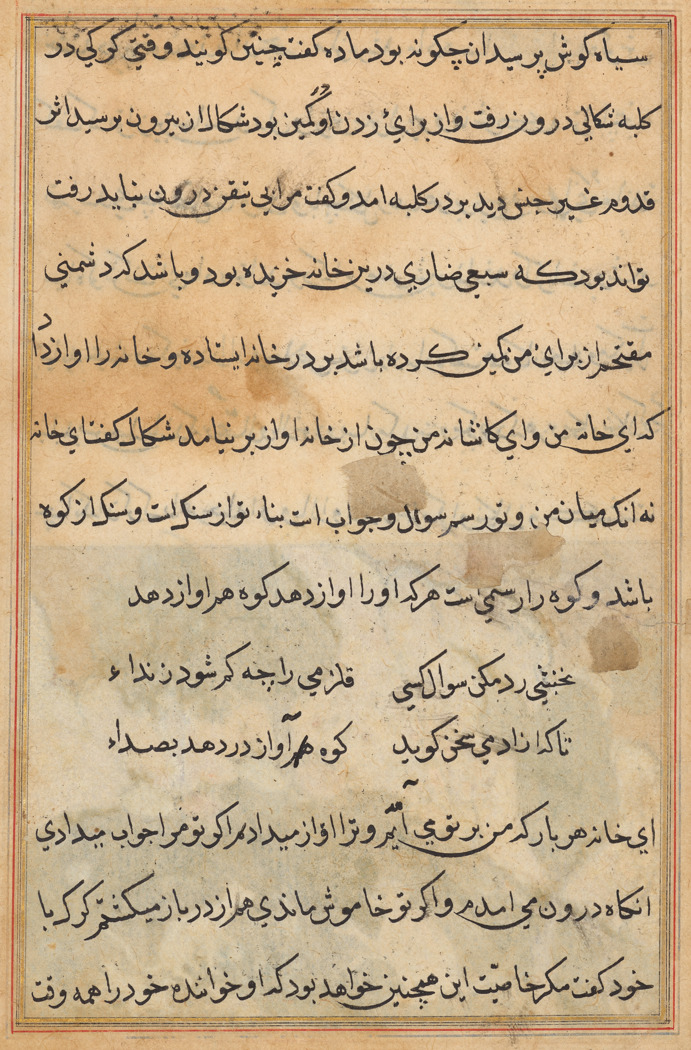 سیاه کوش پرسید ان چکونه بود ماده کفت چنین کویند وقتی کرکی در
کلبه شکالی درون رفت و از برای زدن او کمین بود شکال از بیرون برسید اثر
قدوم غیر جنس دید بر در کلبه امد و کفت مرا بی تیقن درون نباید رفت
تواند بود که سبعی ضاری درین خانه خزیده بود و باشد که دشمنی
مقتحم از برای من کمین کرده باشد بر در خانه ایستاده و خانه را اواز داد
که ای خانه من و ای کاشانه من چون از خانه اواز بر نیامد شکال کفت ای خانه
نه انک میان من و تو رسم سوال و جواب است بناء تو از سنک است و سنک از کوه
باشد و کوه را رسمی ست هر که او را اواز دهد کوه هم اواز دهد
نخشبی رد مکن سوال کسی قلزمی را چه کم شود ز نداء
تا که ازادمی سخن کوید کوه هم آواز در دهد بصداء
ای خانه هر بار که من بر تو می آیم و ترا اواز میدادم اکر تو مرا جواب میدادی
انکاه درون می امدم و اکر تو خاموش ماندی هم از در باز میکشتم کرک با
خود کفت مکر خاصیّت این همچنین خواهد بود که او خواننده خود را همه وقت